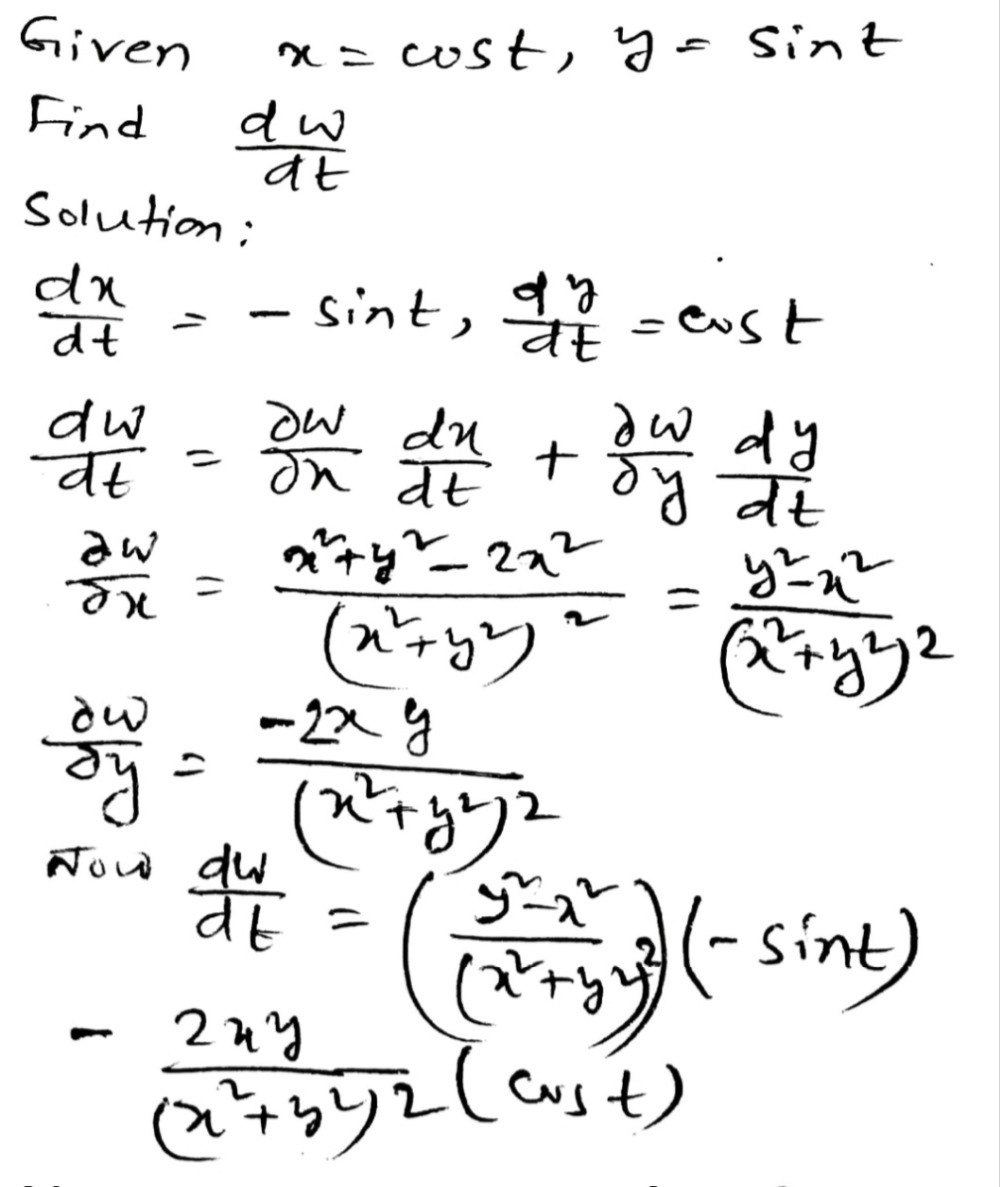 Given x = cost, y = sint
Find dw/dt
Solution:
dx/dt = - sint, dy/dt = cost
dw/dt = ∂w/∂x dx/dt + ∂w/∂y dy/dt
∂w/∂x = (x²+y²-2x²)/(x²+y²)² = (y²-x²)/(x²+y²)²
∂w/∂y = -2xy/(x²+y²)²
Now dw/dt = ((y²-x²)/(x²+y²)²)(-sint)
- 2xy/(x²+y²)² (cost)